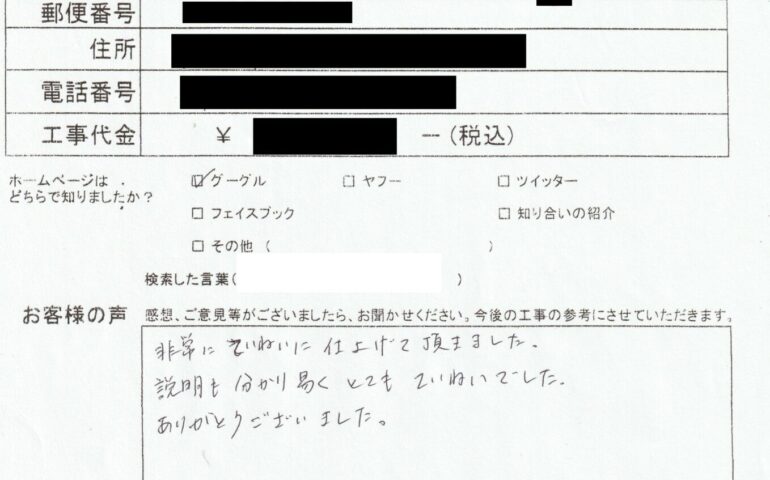 郵便番号
住所
電話番号
工事代金 ¥ ー(税込)
ホームページは
どちらで知りましたか?
☑グーグル □ヤフー □ツイッター
□フェイスブック □知り合いの紹介
□その他( )
検索した言葉( )
お客様の声 感想、ご意見等がございましたら、お聞かせください。今後の工事の参考にさせていただきます。
非常に ていねいに 仕上げて 頂きました。
説明も 分かり易く とても ていねいでした。
ありがとうございました。